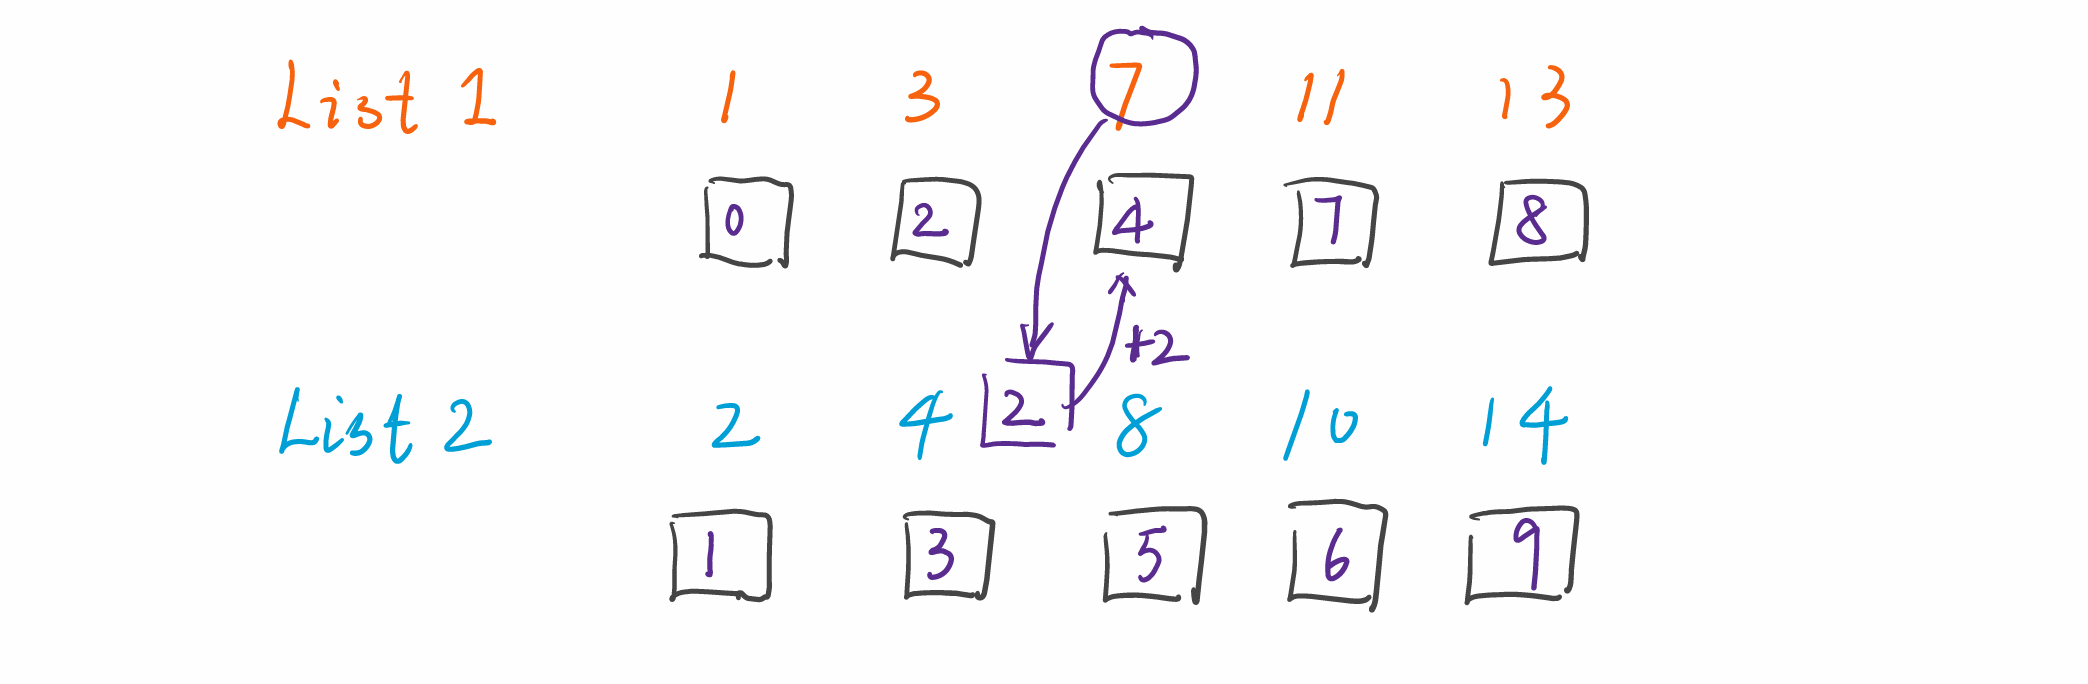 List 1 1 3 7 11 13
0 2 4 7 8
+2
List 2 2 4 2 8 10 14
1 3 5 6 9